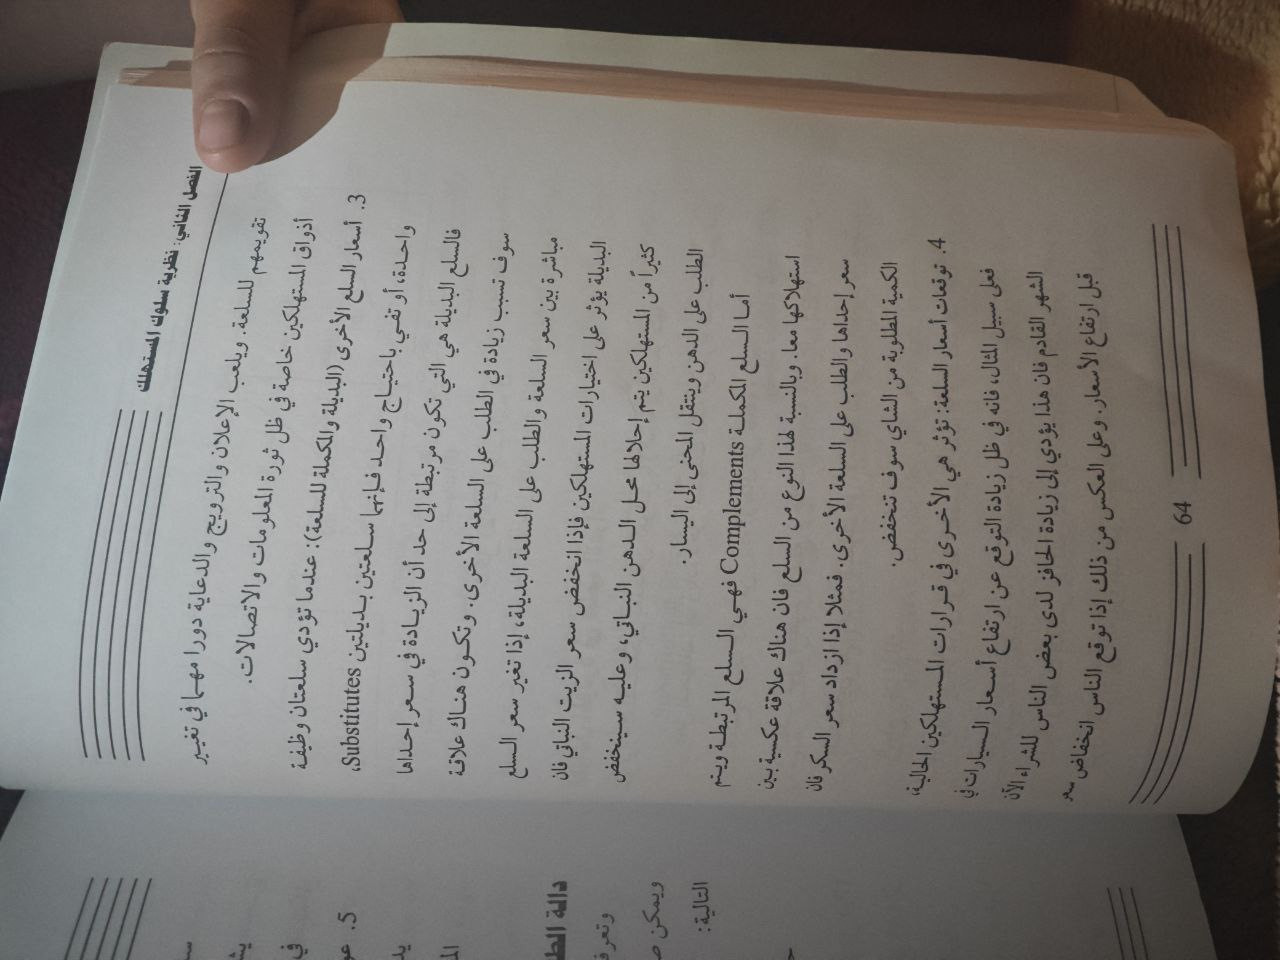 الفصل الثاني: نظرية سلوك المستهلك
تقويمهم للسلعة. ويلعب الإعلان والترويج والدعاية دورا مهما في تغيير
أذواق المستهلكين خاصة في ظل ثورة المعلومات والاتصالات.
3. أسعار السلع الأخرى (البديلة والكملة للسلعة): عندما تؤدي سلعتان وظيفة
واحدة، أو تفي باحتياج واحد فإنهما سلعتين بديلتين Substitutes،
فالسلع البديلة هي التي تكون مرتبطة إلى حد أن الزيادة في سعر إحداها
سوف تسبب زيادة في الطلب على السلعة الأخرى. وتكون هناك علاقة
مباشرة بين سعر السلعة والطلب على السلعة البديلة، إذا تغير سعر السلع
البديلة يؤثر على اختيارات المستهلكين فإذا انخفض سعر الزيت النباتي فان
كثيراً من المستهلكين يتم إحلالها محل الدهن النباتي، وعليه سينخفض
الطلب على الدهن وينتقل المحنى إلى اليسار.
أما السلع الكملة Complements فهي السلع المرتبطة ويتم
استهلاكها معا. وبالنسبة لهذا النوع من السلع فان هناك علاقة عكسية بين
سعر إحداها والطلب على السلعة الأخرى. فمثلا إذا ازداد سعر السكر فان
الكمية المطلوبة من الشاي سوف تنخفض.
4. توقعات أسعار السلعة: تؤثر هي الأخرى في قرارات المستهلكين الحالية،
فعلى سبيل المثال، فانه في ظل زيادة التوقع عن ارتفاع أسعار السيارات في
الشهر القادم فان هذا يؤدي إلى زيادة الحافز لدى بعض الناس للشراء الآن
قبل ارتفاع الأسعار. وعلى العكس من ذلك إذا توقع الناس انخفاض سعر
64
5. عو
في
دالة الط
وتعرف
ويمكن ص
التالية: